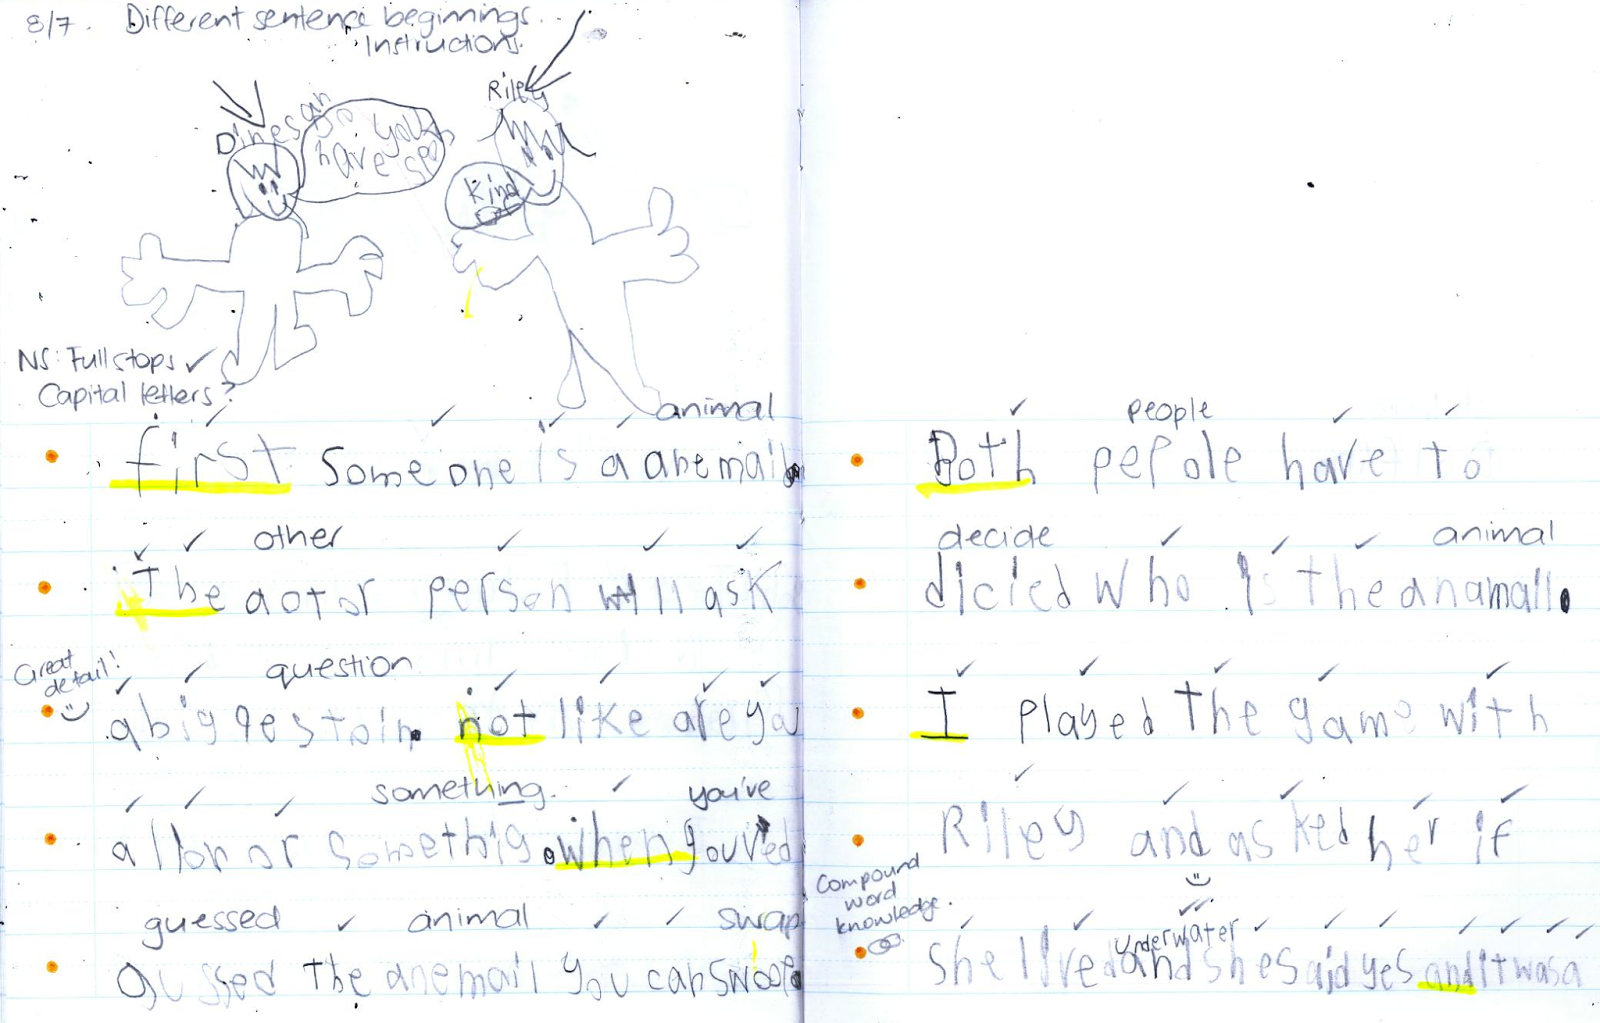 8/7. Different sentence beginnings.
Instructions.
Dinesan
Do you
have sp
Riley
Kind
Of
NS: Fullstops ✓
Capital letters?
animal
first Some one is a anemail.
other
The aotor person will ask
Great
detail!
question
a big qestoin. not like are ya
something. you've
a lion or somethig. when youv'ed
guessed animal swap
gussed the anemail you can swoop
people
Both pepole have to
decide animal
dicied who is the anamall.
I played the game with
Riley and asked her if
Compound
word
knowledge.
underwater
she lived and she said yes and it was a